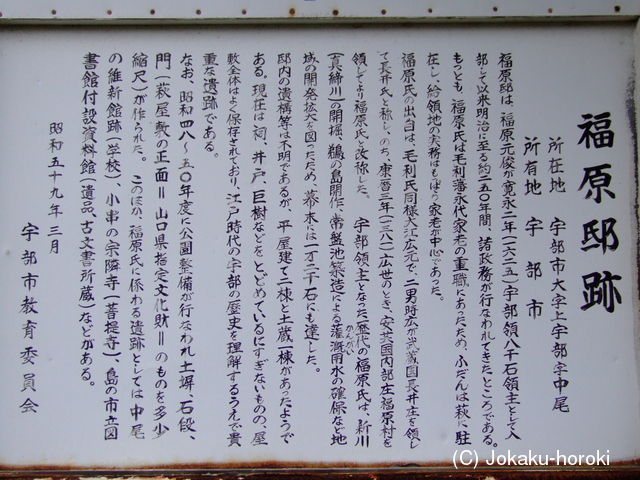 福原邸跡
所在地　宇部市大字上宇部字中尾
所有地　宇部市
福原邸は、福原元俊が寛永二年（一六二五）宇部領八千石領主として入
部して以来明治に至る約二五〇年間、諸政務が行なわれてきたところである。
もっとも、福原氏は毛利藩永代家老の重職にあったため、ふだんは萩に駐
在し、給領地の実務はもっぱら家老が中心であった。
福原氏の出自は、毛利氏同様大江広元で、二男時広が武蔵国長井庄を領し
て長井氏と称し、のち、康暦三年（一三八一）広世のとき、安芸国内部庄福原村を
領してより福原氏と改称した。　宇部領主となった歴代の福原氏は、新川
（真締川）の開堀、鵜の島開作、常盤池築造による灌漑用水の確保など地
かんがい
域の開発拡大を図ったため、幕末には一万二千石にも達した。
邸内の遺構等は不明であるが、平屋建て二棟と土蔵一棟があったようで
ある。現在は、祠、井戸、巨樹などをとどめているにすぎないものの、屋
敷全体はよく保存されており、江戸時代の宇部の歴史を理解するうえで貴
重な遺跡である。
なお、昭和四八〜五〇年度に公園整備が行なわれ土塀、石段、
門（萩屋敷の正面＝山口県指定文化財＝のものを多少
縮尺）が作られた。このほか、福原氏に係わる遺跡としては中尾
の維新館跡（学校）、小串の宗隣寺（菩提寺）、島の市立図
書館付設資料館（遺品、古文書所蔵）などがある。
昭和五十九年三月
宇部市教育委員会
(C) Jokaku-horoki